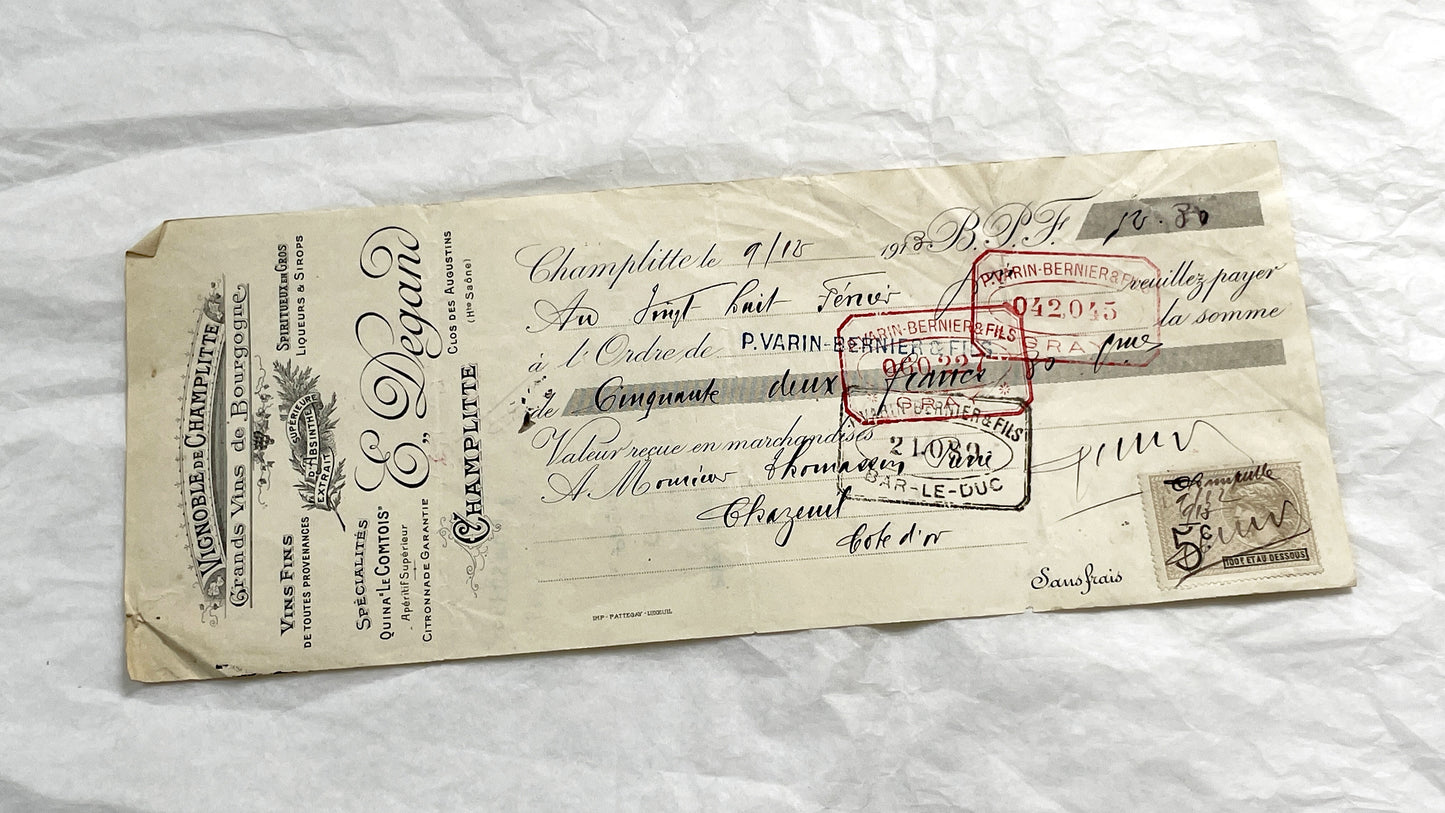 VIGNOBLE DE CHAMPLITTE
Grands Vins de Bourgogne
VINS FINS
DE TOUTES PROVENANCES
SPIRITUEUX EN GROS
LIQUEURS & SIROPS
EXTRAIT D'ABSINTHE SUPÉRIEURE
SPÉCIALITÉS
QUINA "LE COMTOIS"
Apéritif Supérieur
CITRONNADE GARANTIE
E. Degand
CLOS DES AUGUSTINS
(Hte Saône)
CHAMPLITTE
Champlitte le 9/12 1913 B.P.F. 52.80
Au Vingt huit Février veuillez payer
à l'Ordre de P. VARIN-BERNIER & FILS la somme
de Cinquante deux francs 80
Valeur reçue en marchandises
A Monsieur Thomassin Pierre
Chazeuil
Cote d'or
Sans frais
P. VARIN-BERNIER & FILS
042,045
GRAY
P. VARIN-BERNIER & FILS
GRAY
VARIN-BERNIER & FILS
21089
BAR-LE-DUC
5c
100F ET AU DESSOUS
IMP. PATTEGAY-LUXEUIL